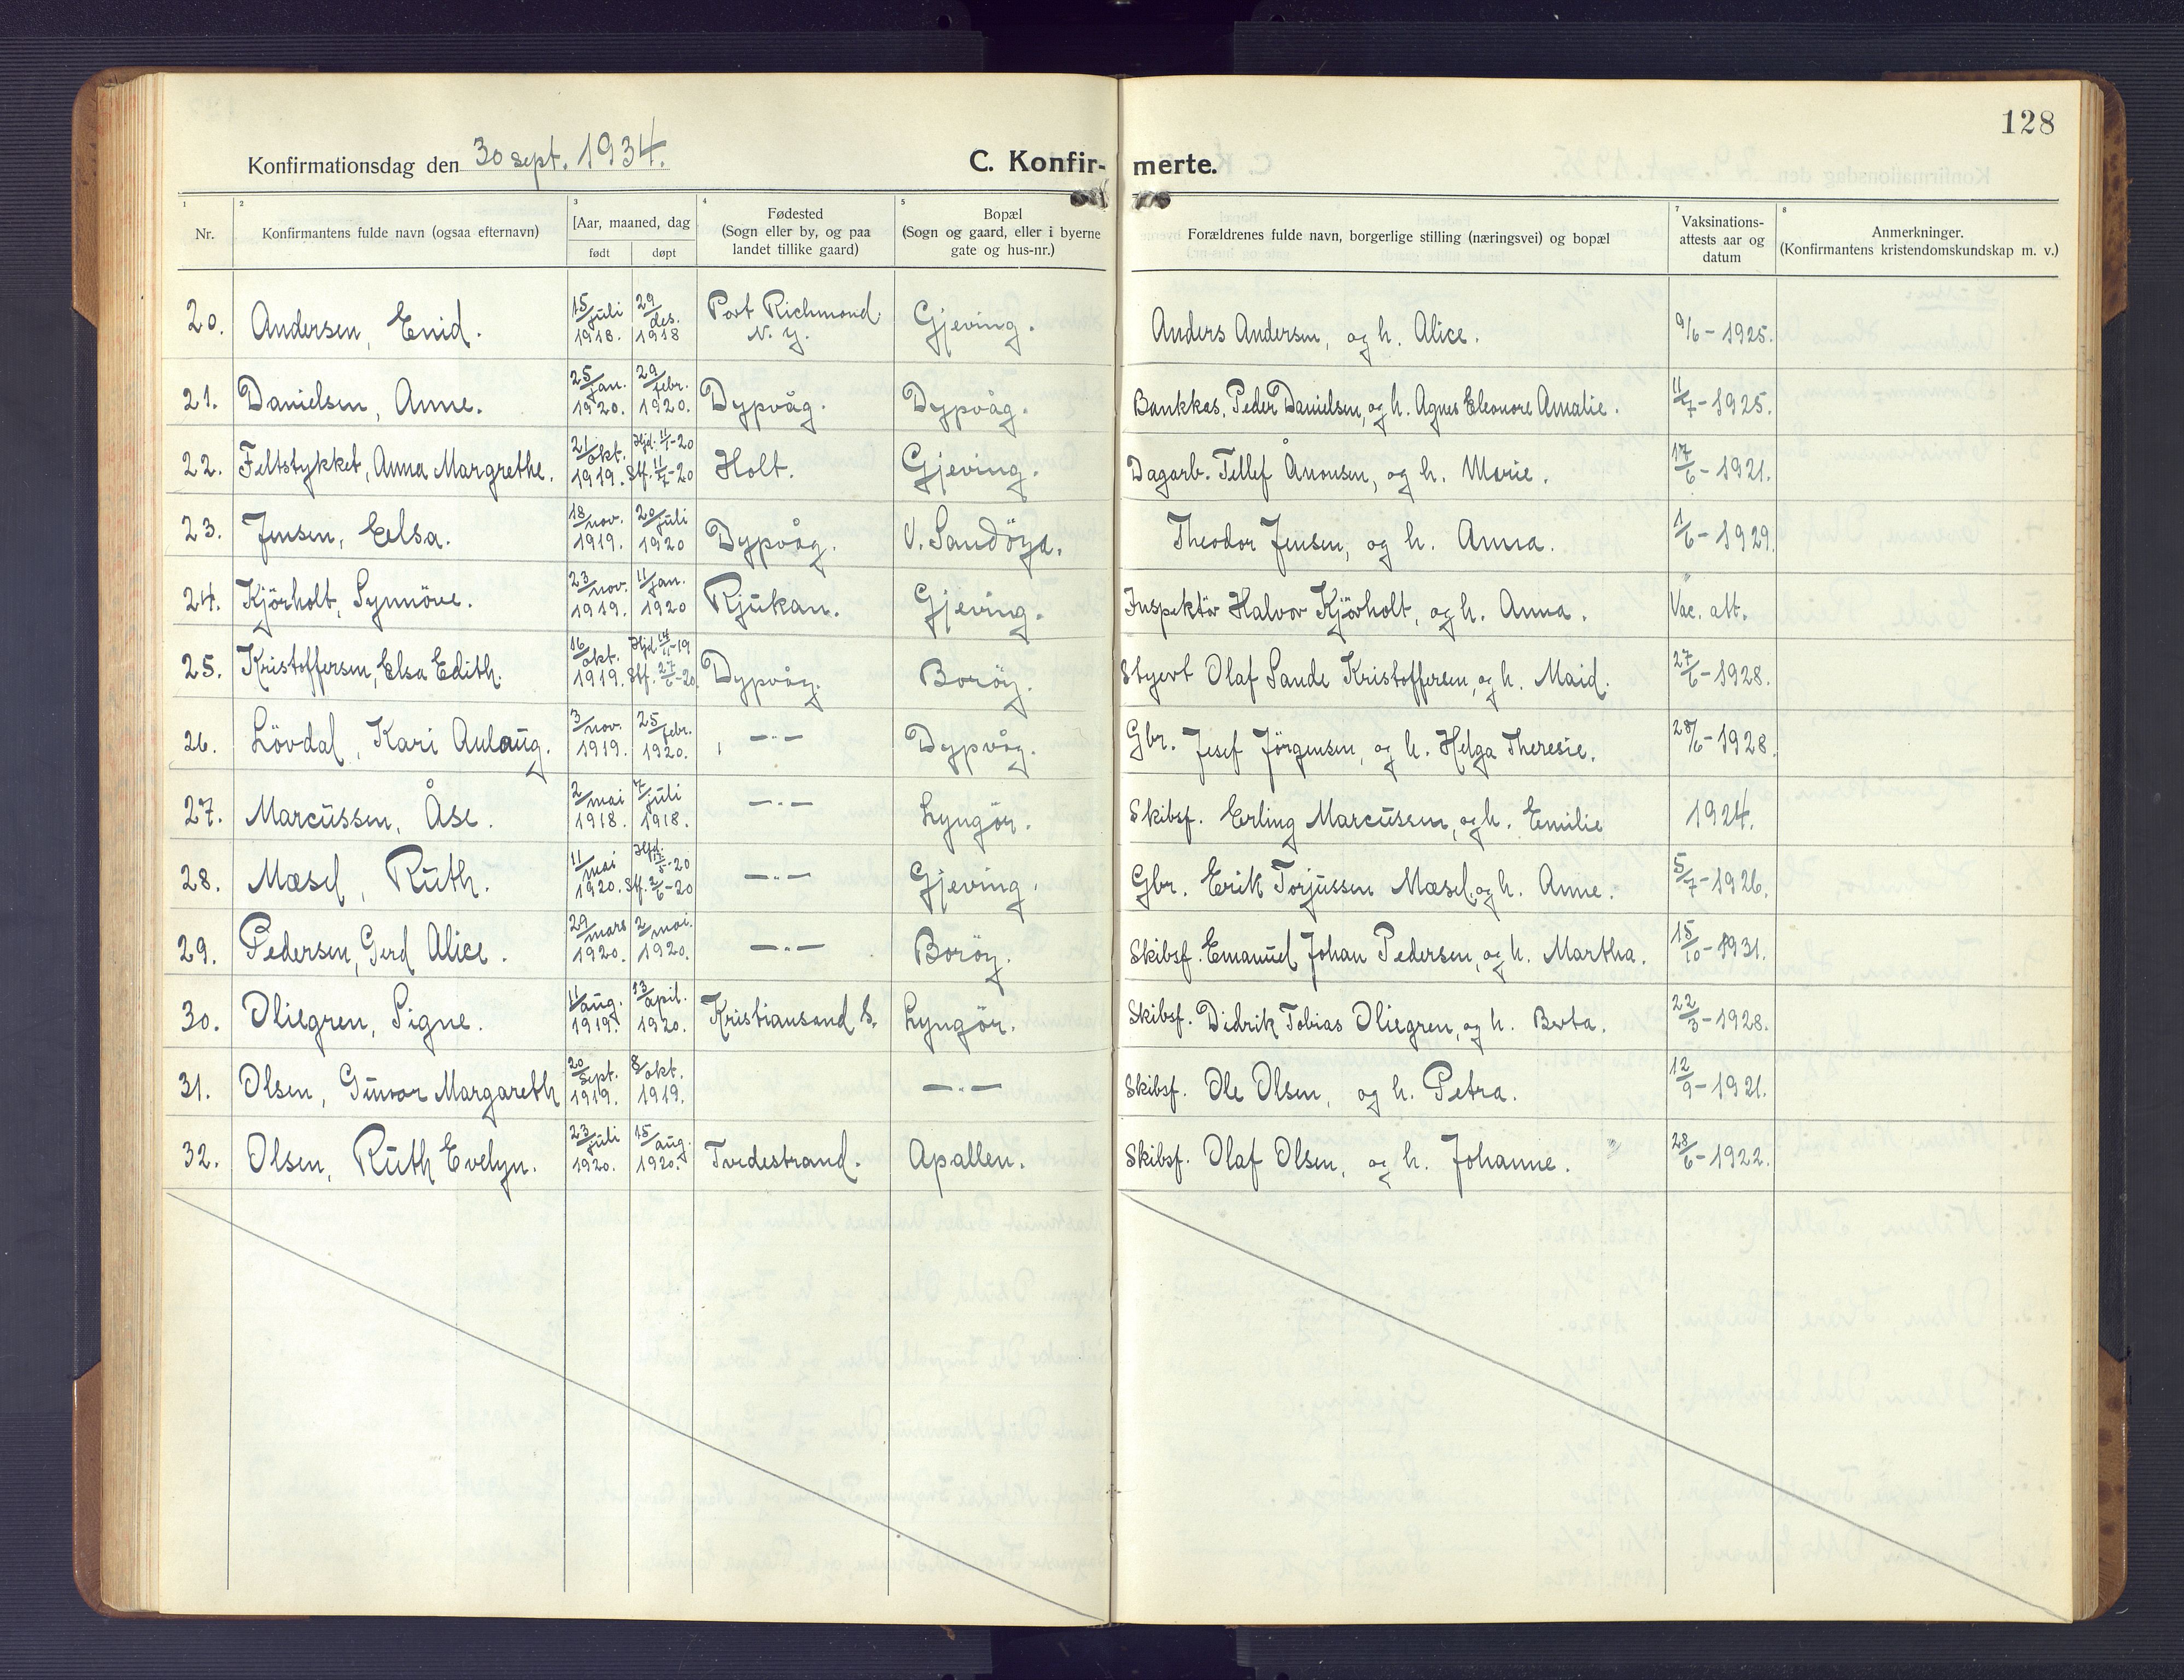 128
Konfirmationsdag den 30 sept. 1934.
C. Konfir- merte.
1 2 3 4 5 7 8
Nr.
Konfirmantens fulde navn (ogsaa efternavn)
[Aar, maaned, dag
født døpt
Fødested
(Sogn eller by, og paa
landet tillike gaard)
Bopæl
(Sogn og gaard, eller i byerne
gate og hus-nr.)
Forældrenes fulde navn, borgerlige stilling (næringsvei) og bopæl
Vaksinations-
attests aar og
datum
Anmerkninger.
(Konfirmantens kristendomskundskap m. v.)
20. Andersen, Enid. 15/juli 1918. 29/des. 1918 Port Richmond N. Y. Gjeving. Anders Andersen, og h. Alice. 9/6-1925.
21. Danielsen, Anne. 25/jan. 1920. 29/febr. 1920. Dypvåg. Dypvåg. Bankkas. Peder Danielsen, og h. Agnes Eleonore Amalie. 11/7-1925.
22. Feltstykket, Anna Margrethe. 21/okt. 1919. Hjd. 11/1-20 Stf. 11/7-20 Holt. Gjeving. Dagarb. Tellef Ånonsen, og h. Marie. 17/6-1921.
23. Jensen, Eelsa. 18/nov. 1919. 20/juli 1920 Dypvåg. V. Sandöya. Theodor Jensen, og h. Anna. 1/6-1929.
24. Kjörholt, Synnöve. 23/nov. 1919. 11/jan. 1920 Rjukan. Gjeving. Inspektör Halvor Kjörholt, og h. Anna. Vac. att.
25. Kristoffersen, Elsa Edith. 16/okt. 1919. Hjd. 14/11-19 Stf. 27/6-20 Dypvåg. Boröy. Styert Olaf Sande Kristoffersen, og h. Maid. 27/6-1928.
26. Lövdal, Kari Aulaug. 3/nov. 1919. 25/febr. 1920. —"— Dypvåg. Gbr. Josef Jörgensen, og h. Helga Theresie. 28/6-1928.
27. Marcussen, Åse. 2/mai 1918. 7/juli 1918. —"— Lyngör. Skibsf. Erling Marcussen, og h. Emilie 1924.
28. Mæsel, Ruth. 11/mai 1920. Hjd. 17/5-20 Stf. 2/6-20 —"— Gjeving. Gbr. Erik Torjussen Mæsel, og h. Anne. 5/7-1926.
29. Pedersen, Gerd Alice. 29/mars 1920. 2/mai. 1920. —"— Boröy. Skibsf. Emanuel Johan Pedersen, og h. Martha. 15/10-1931.
30. Oliegren, Signe. 11/aug. 1919. 13/april. 1920. Kristiansand S. Lyngör. Skibsf. Didrik Tobias Oliegren, og h. Berta. 22/3-1928.
31. Olsen, Gunvor Margareth 20/sept. 1919. 8/okt. 1919. —"— Skibsf. Ole Olsen, og h. Petra. 12/9-1921.
32. Olsen, Ruth Evelyn. 23/juli 1920. 15/aug. 1920. Tvedestrand. Apallen. Skibsf. Olaf Olsen, og h. Johanne. 28/6-1922.